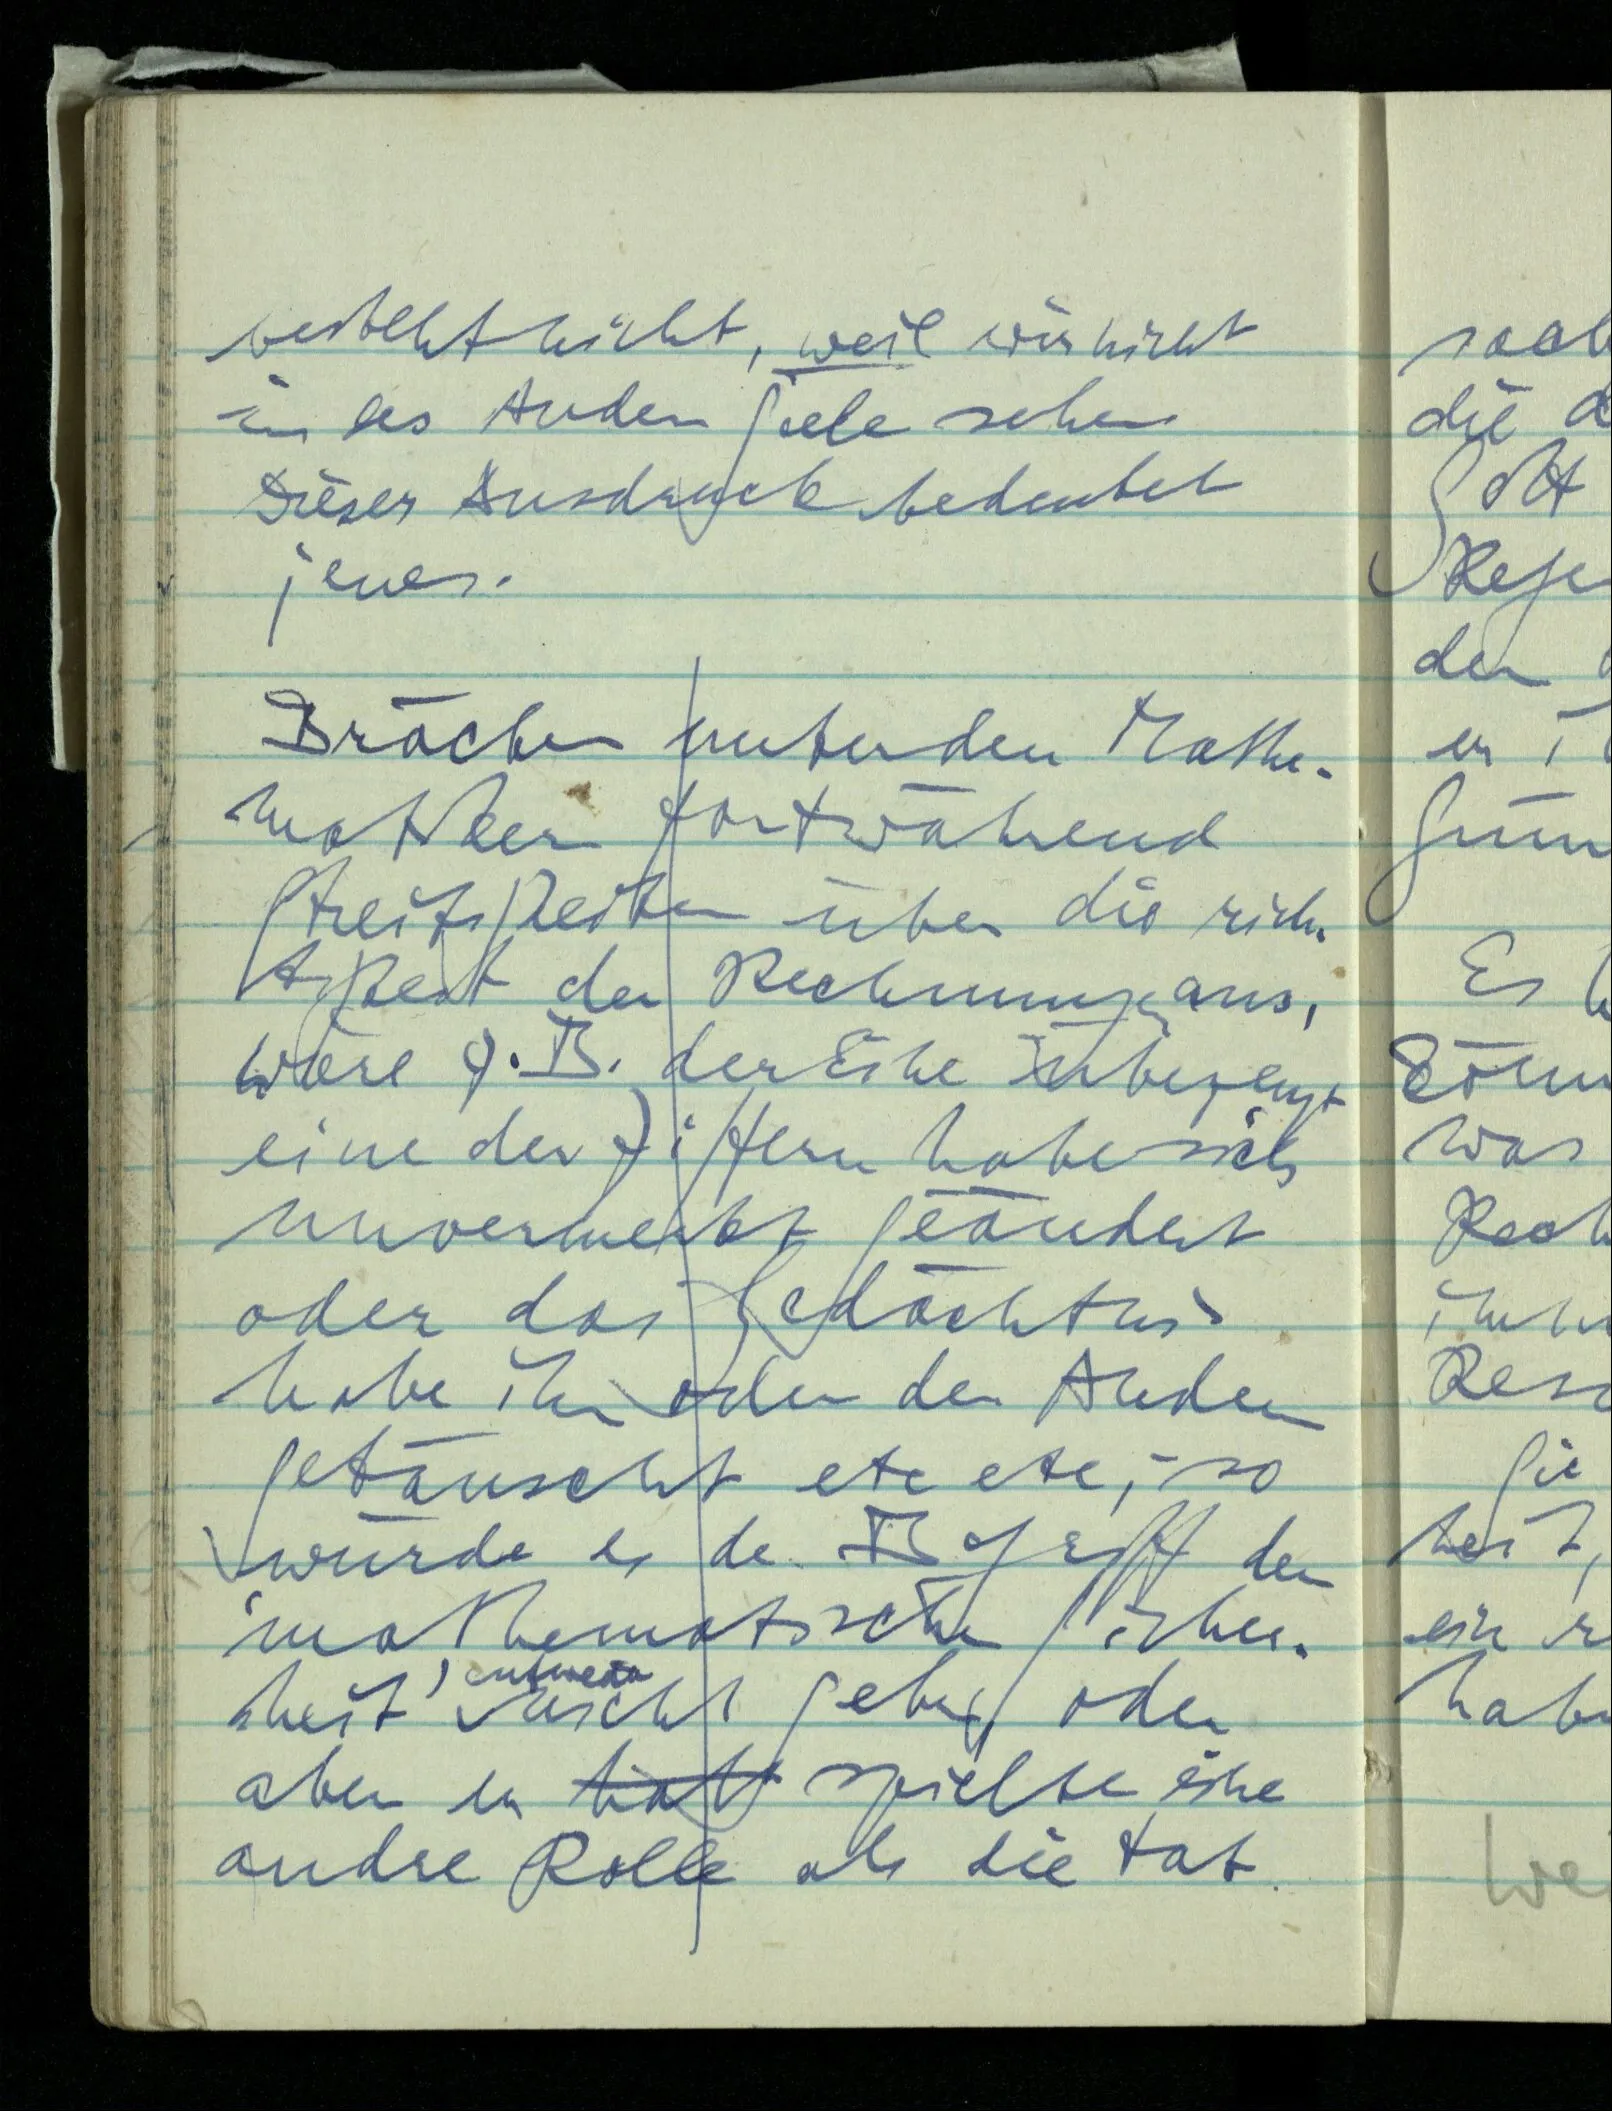 besteht nicht, weil wir nicht
in des Andern Seele sehen
Dieser Ausdruck bedeutet
jenes.
Brächen unter den Mathe-
matikern fortwährend
Streitigkeiten über die Rich-
tigkeit der Rechnungen aus,
wäre z.B. der Eine überzeugt
eine der Ziffern habe sich
unvermerkt geändert
oder das Gedächtnis
habe ihn oder den Andern
getäuscht etc etc, – so
würde es den Begriff der
'mathematischen Sicher-
heit' entweder nicht geben, oder
aber er hat spielte eine
andre Rolle als die tat.
sach
die d
Gott
Rege
den
er i
Grün
Es
könn
was
Rech
imm
Res
Sie
heit,
ein
habe
We